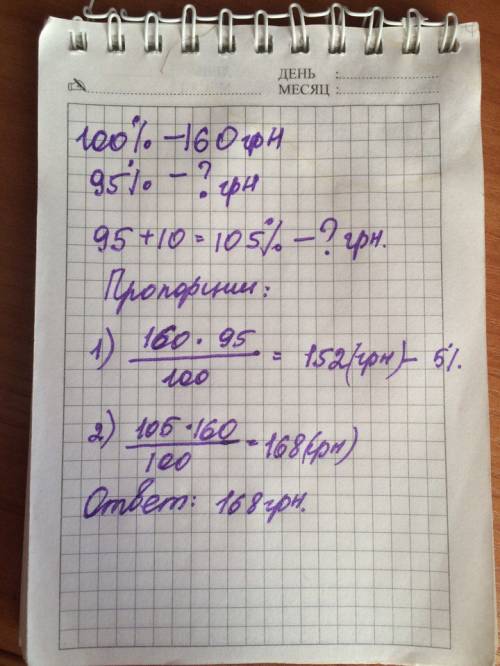 ДЕНЬ :
МЕСЯЦ :
100% – 160 грн
95% – ? грн
95 + 10 = 105% – ? грн.
Пропорции:
1) 160 · 95 / 100 = 152 (грн) – 5%.
2) 105 · 160 / 100 = 168 (грн)
Ответ: 168 грн.